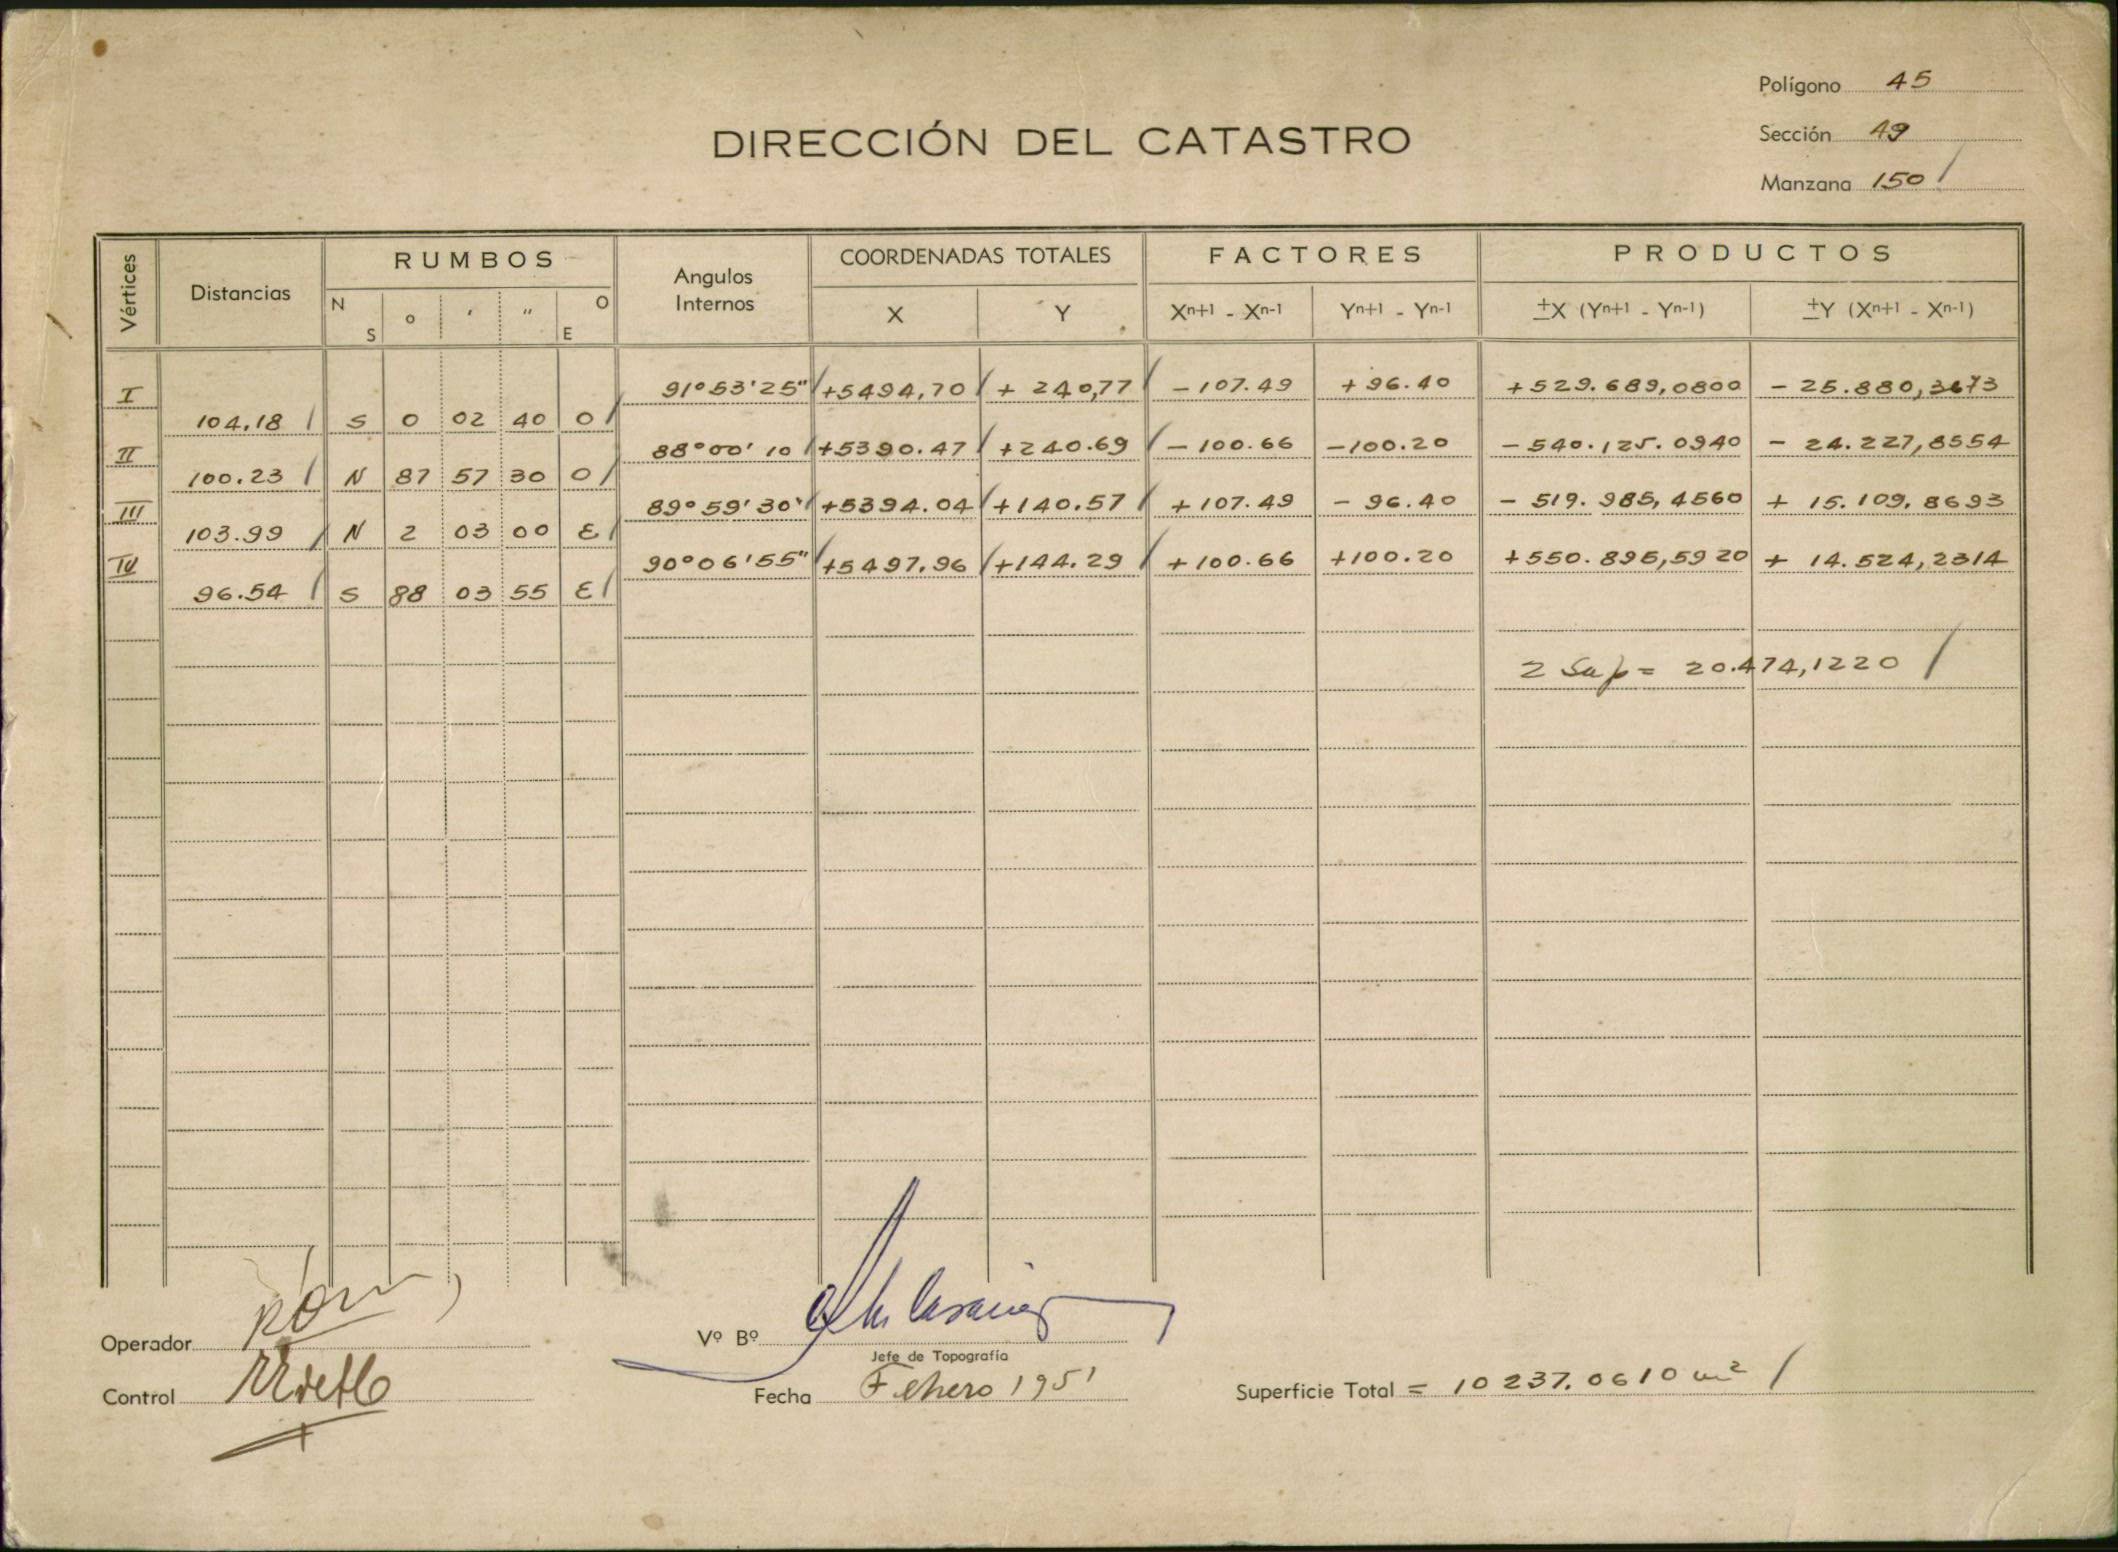 Polígono 45
DIRECCIÓN DEL CATASTRO
Sección 49
Manzana 150 /
Vértices Distancias RUMBOS Angulos Internos COORDENADAS TOTALES FACTORES PRODUCTOS
N S o ' '' O E X Y Xn+1 - Xn-1 Yn+1 - Yn-1 ±X (Yn+1 - Yn-1) ±Y (Xn+1 - Xn-1)
I 91°53'25" / +5494,70 / + 240,77 / - 107.49 + 96.40 +529.689,0800 - 25.880,3673
104.18 / S 0 02 40 O /
II 88°00' 10 / +5390.47 / +240.69 / - 100.66 -100.20 - 540.125.0940 - 24.227,8554
100.23 / N 87 57 30 O /
III 89°59'30" / +5394.04 / +140.57 / + 107.49 - 96.40 - 519.985,4560 + 15.109,8693
103.99 / N 2 03 00 E /
IV 90°06'55" / +5497,96 / +144.29 / + 100.66 +100.20 +550.895,5920 + 14.524,2314
96.54 / S 88 03 55 E /
2 Sup = 20.474,1220 /
Operador
Vº Bº
Jefe de Topografía
Control
Fecha Febrero 1951
Superficie Total = 10237.0610 m² /